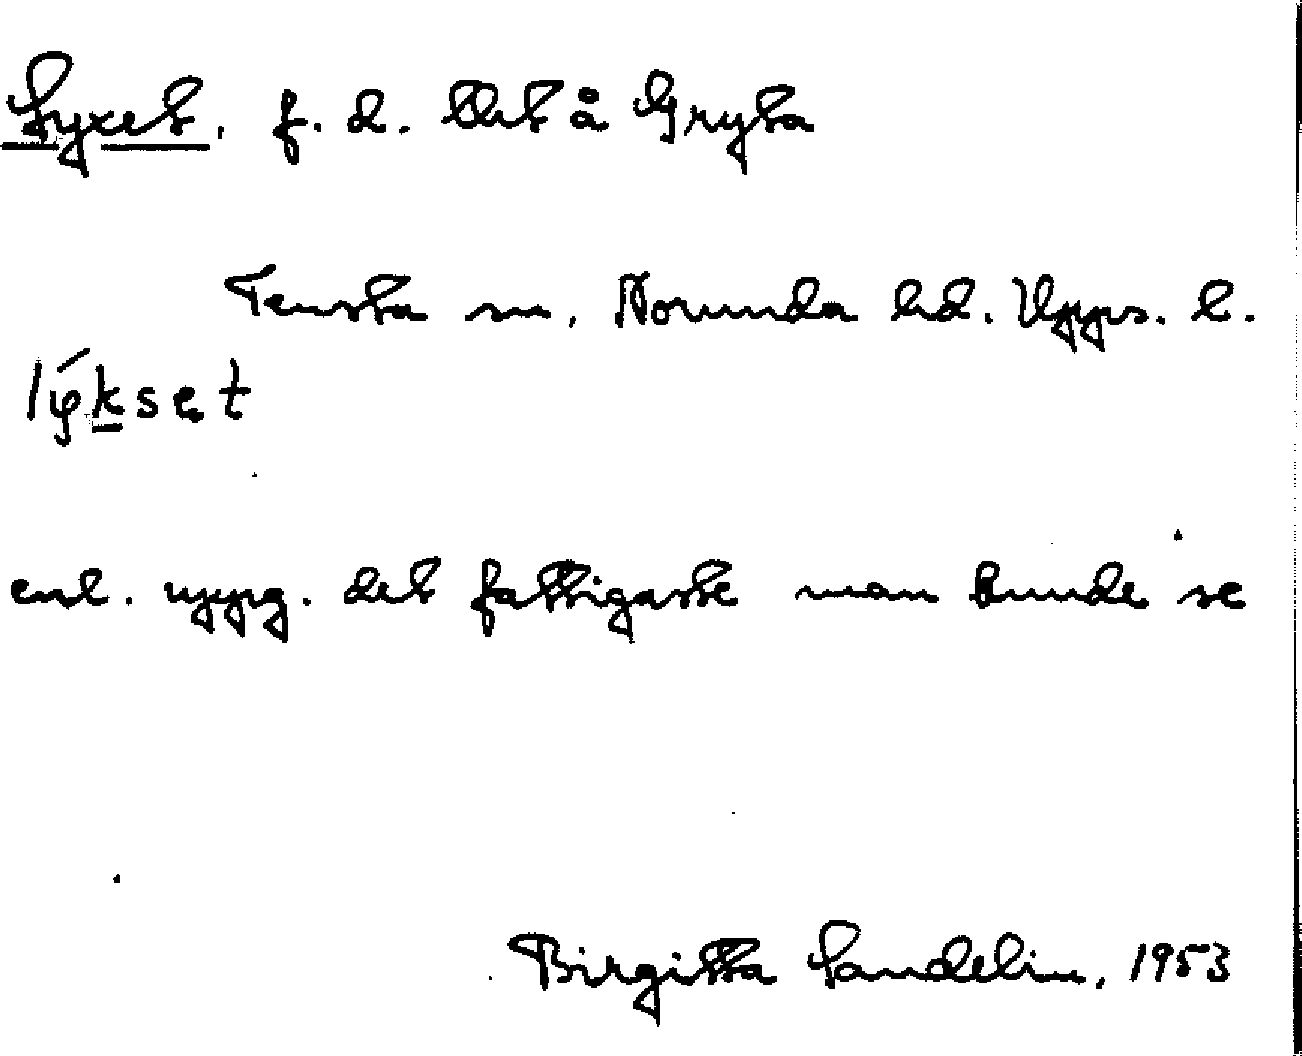 Lyxet. f. d. tht å Gryta
Tensta sn, Norunda hd. Upps. l.
lýkset
enl. uppg. det fattigaste man kunde se
Birgitta Sandelin, 1953